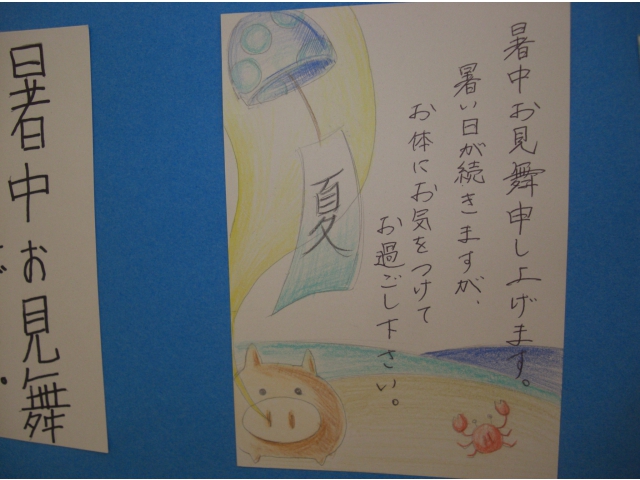 暑中お見舞申し上げます。
暑い日が続きますが、
お体にお気をつけて
お過ごし下さい。
夏
暑中お見舞